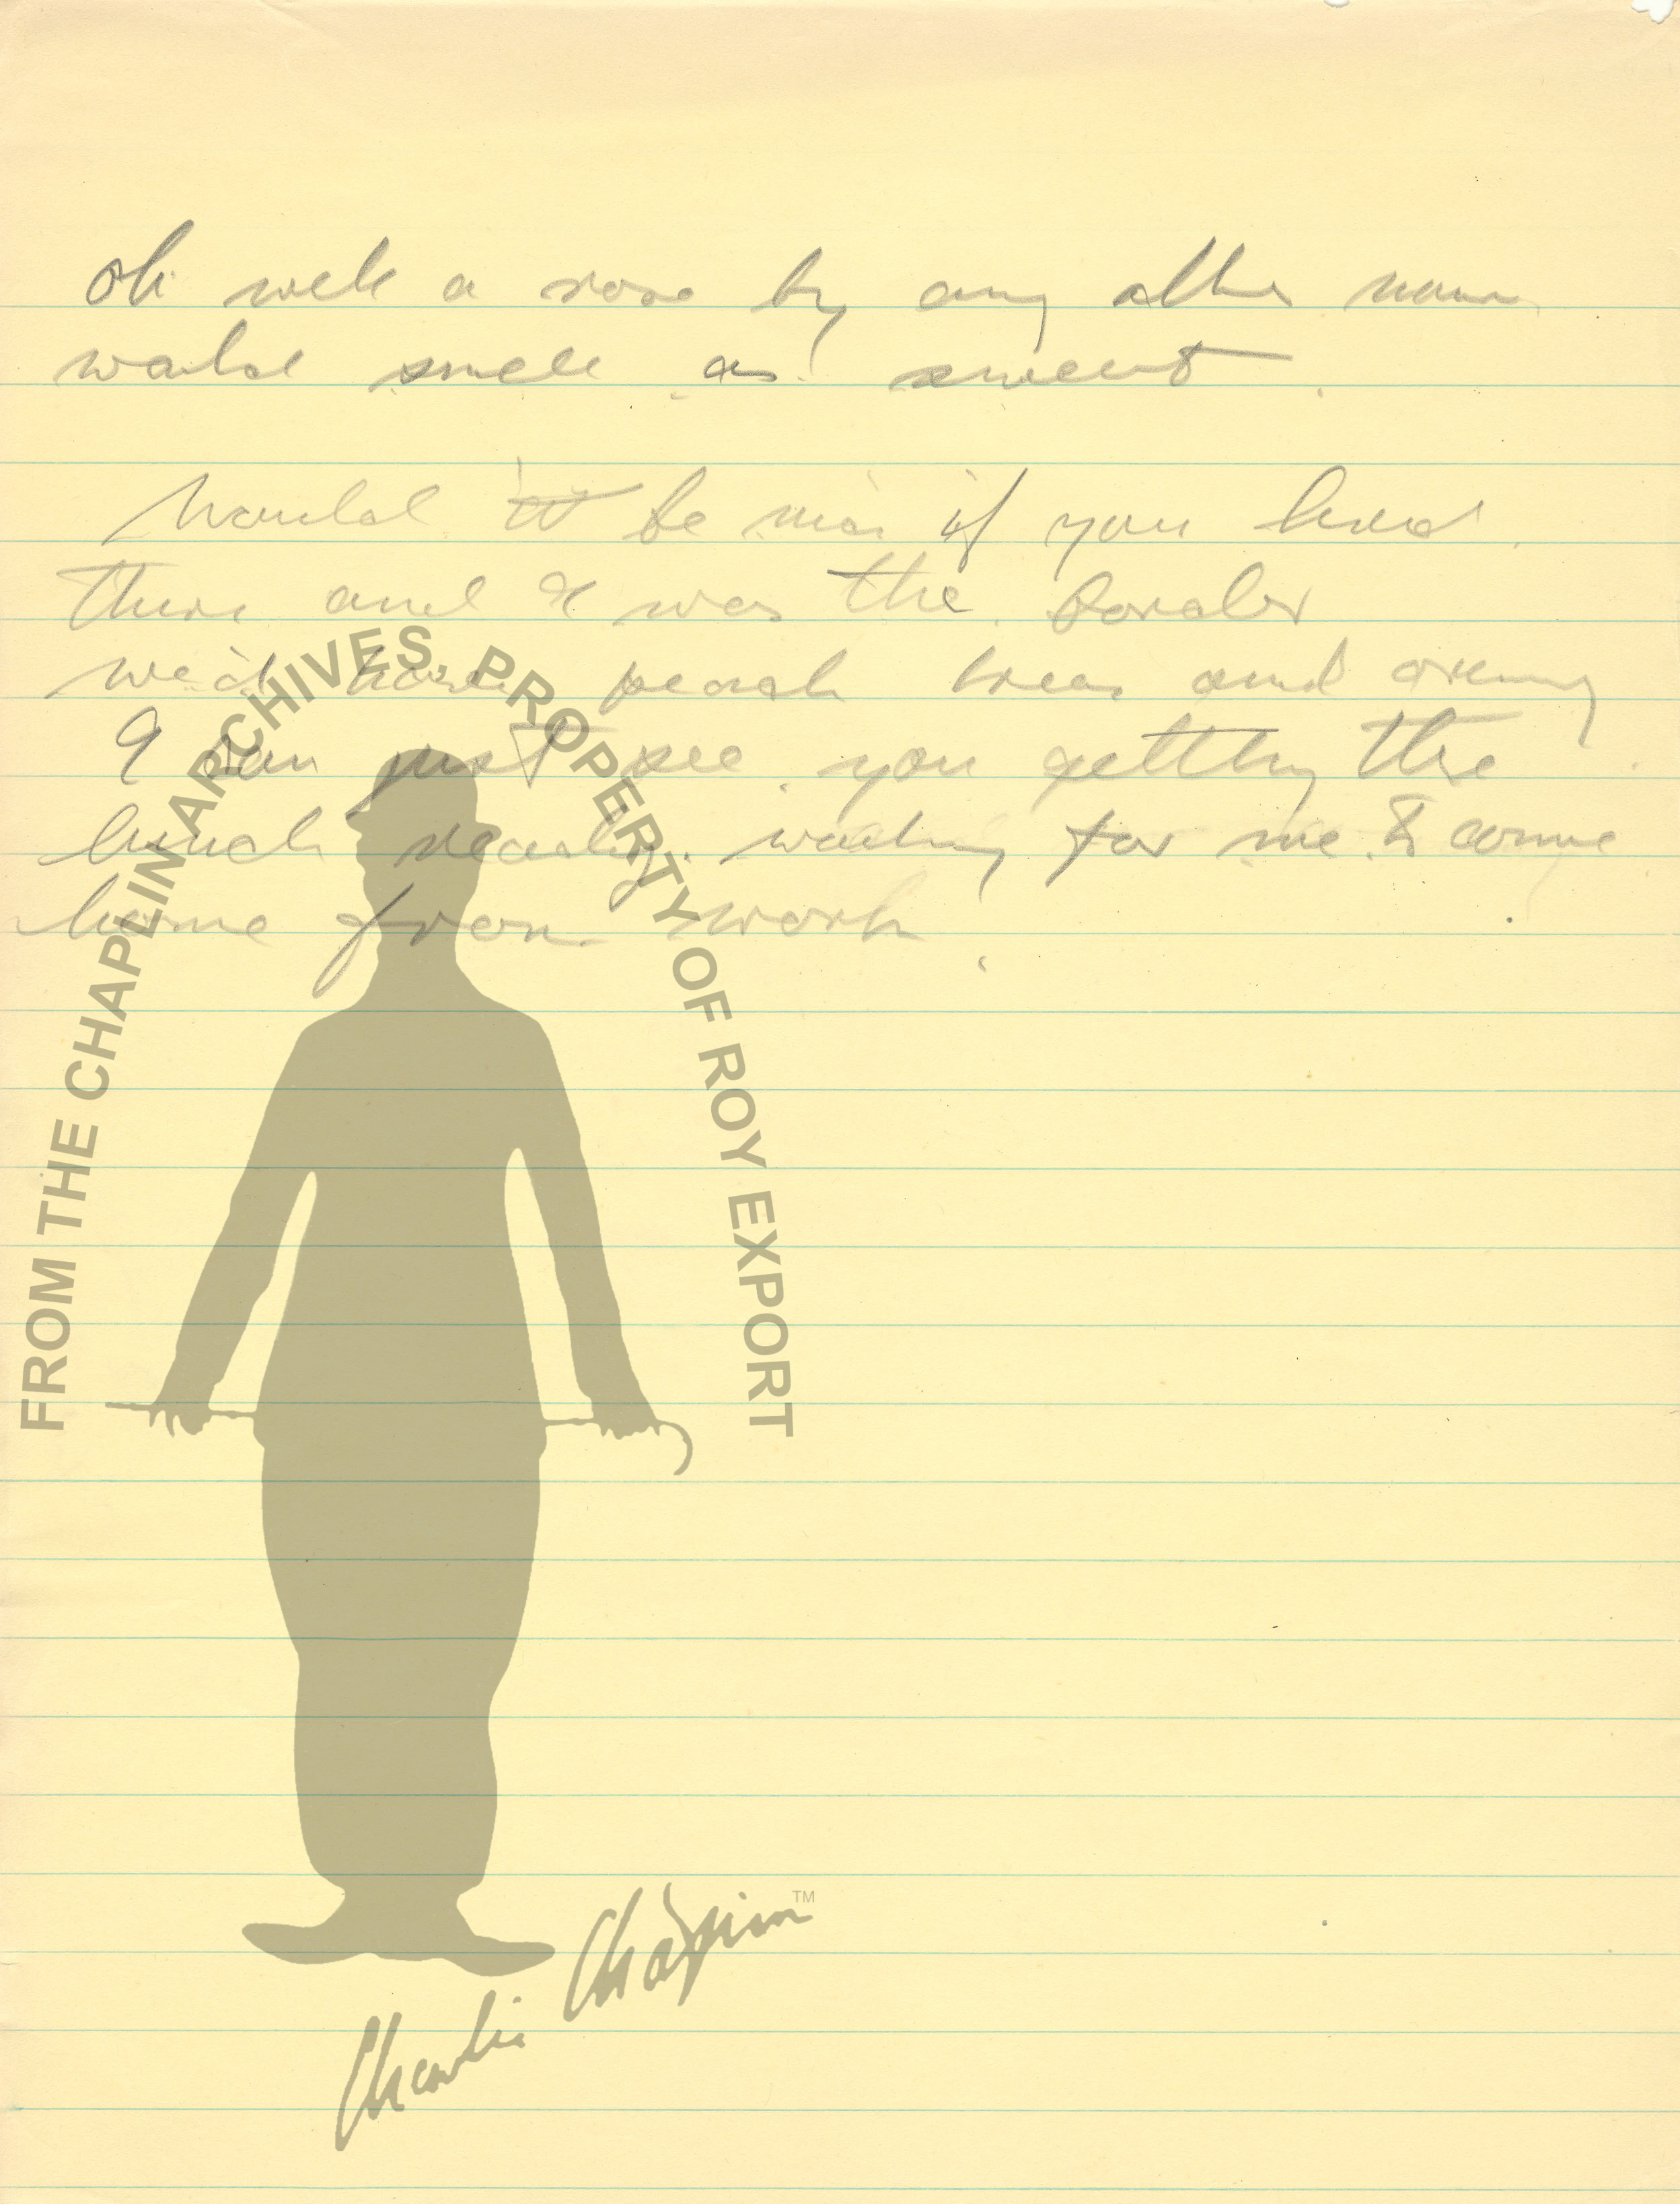 oh well a rose by any other name
would smell as sweet.
Would it be nice if you lived
there and I was the border
we'd have peach trees and
I can just see you getting the
lunch ready. waiting for me to come
home from work.
FROM THE CHAPLIN ARCHIVES, PROPERTY OF ROY EXPORT
Charlie Chaplin TM